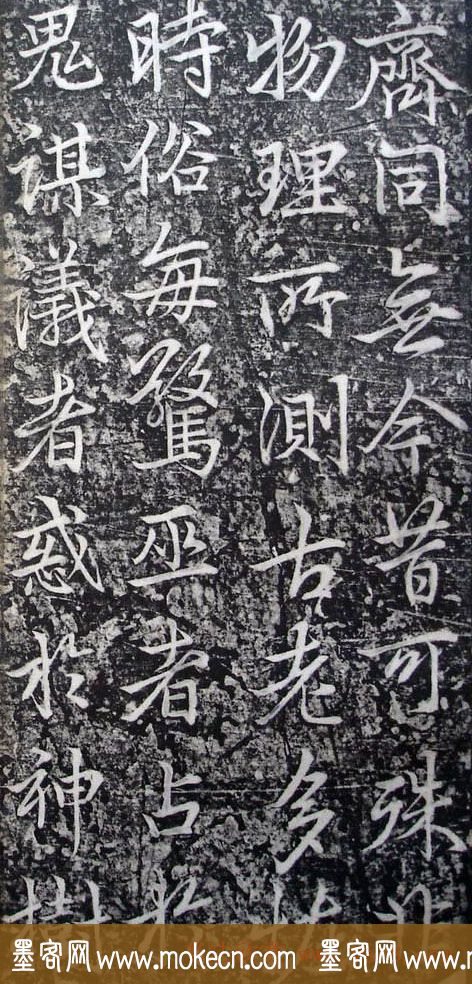 齊同無今昔可殊非
物理所測古老多
時俗每驚巫者占於
鬼謀議者惑於神樹
墨客网 www.mokecn.com 墨客网 www.mokecn.com